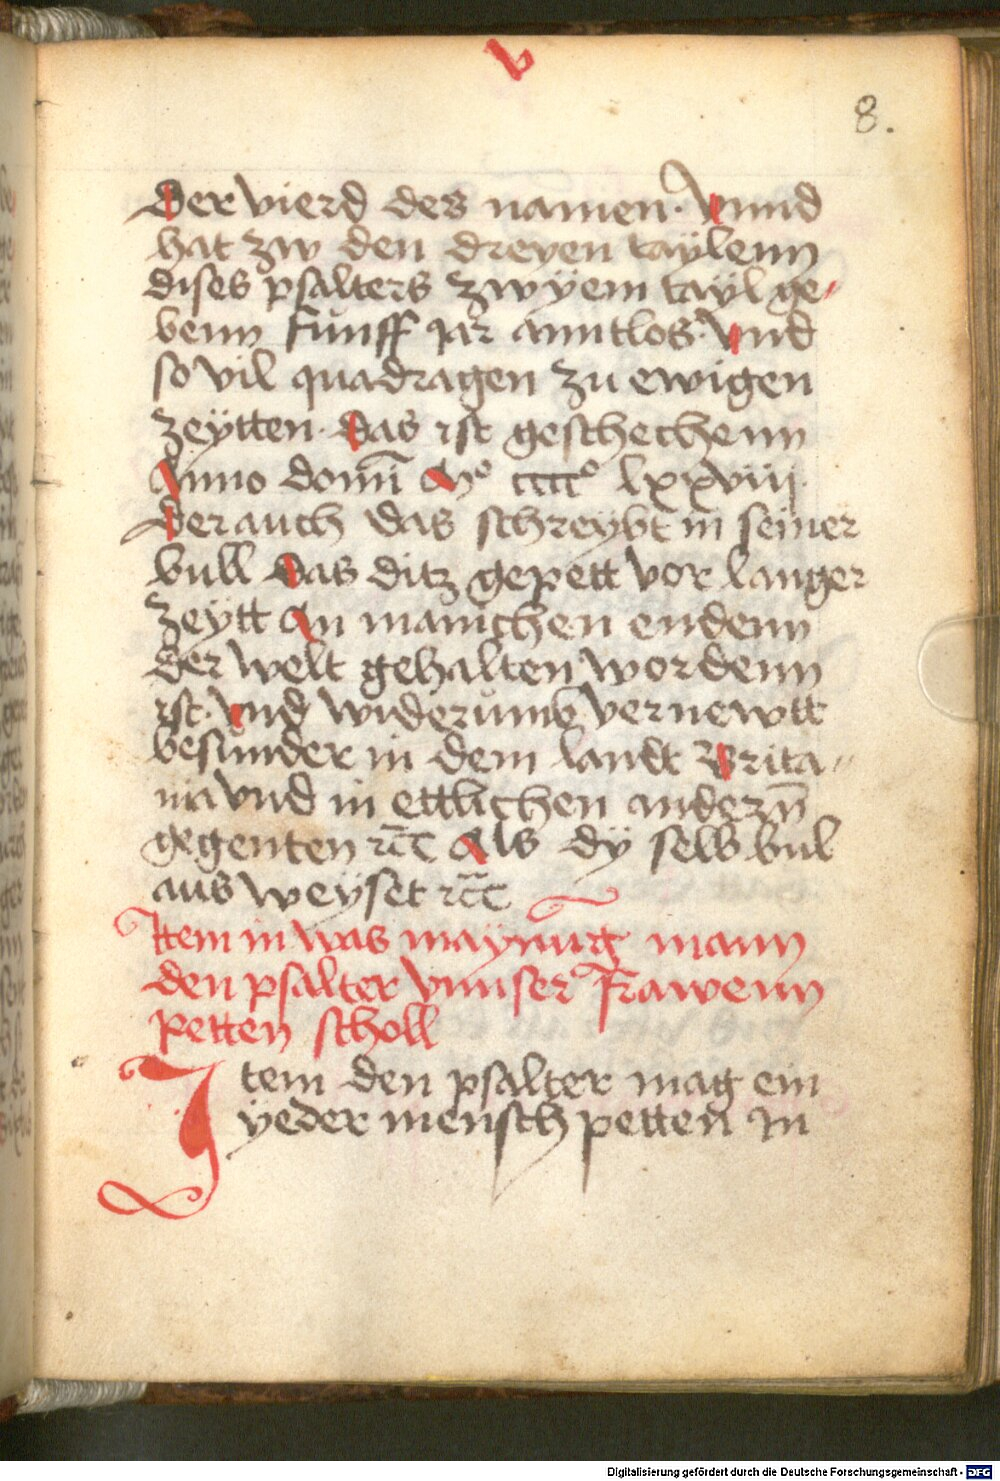 v
8.
Der vierd des namen. Vnnd
hat zw den dreyen taÿlenn
dises psalters zwÿem taÿl ge-
benn funff jar anntlos. Vnd
so vil quadragen zu ewigen
zeÿtten. Das ist geschechenn
Anno domī Mº ccccº lxxviij.
Der auch das schreÿbt in seiner
bull Das ditz gepett vor langer
zeÿtt An manichen endenn
der welt gehalten wordenn
ist. Vnd widerumb vernewtt
besunder in dem landt Brita-
nia vnd in ettlichen andern̄
gegenten ꝛc̄ Als dÿ selb bul
aus weÿset ꝛc̄
Item in was maÿnūg mann
den psalter vnnser frawenn
petten scholl
Item den psalter mag ein
yeder mensch petten In
Digitalisierung gefördert durch die Deutsche Forschungsgemeinschaft - DFG